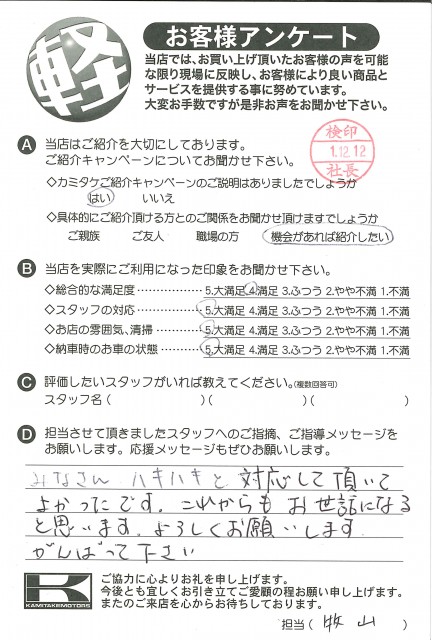 軽
お客様アンケート
当店では、お買い上げ頂いたお客様の声を可能
な限り現場に反映し、お客様により良い商品と
サービスを提供する事に努めています。
大変お手数ですが是非お声をお聞かせ下さい。
検印
1.12.12
社長
A 当店はご紹介を大切にしております。
ご紹介キャンペーンについてお聞かせ下さい。
◇カミタケご紹介キャンペーンのご説明はありましたでしょうか
はい いいえ
◇具体的にご紹介頂ける方とのご関係をお聞かせ頂けますでしょうか
ご親族 ご友人 職場の方 機会があれば紹介したい
B 当店を実際にご利用になった印象をお聞かせ下さい。
◇総合的な満足度 …………… 5.大満足 4.満足 3.ふつう 2.やや不満 1.不満
◇スタッフの対応 …………… 5.大満足 4.満足 3.ふつう 2.やや不満 1.不満
◇お店の雰囲気、清掃 ……… 5.大満足 4.満足 3.ふつう 2.やや不満 1.不満
◇納車時のお車の状態 ……… 5.大満足 4.満足 3.ふつう 2.やや不満 1.不満
C 評価したいスタッフがいれば教えてください。(複数回答可)
スタッフ名 ( )( )( )
D 担当させて頂きましたスタッフへのご指摘、ご指導メッセージを
お願いします。応援メッセージもぜひお願いします。
みなさん ハキハキと 対応して頂いて
よかったです。これからも お世話になる
と思います。よろしくお願いします。
がんばって下さい
K
KAMITAKE MOTORS
ご協力に心よりお礼を申し上げます。
今後とも宜しくお引き立てご愛顧の程お願い申し上げます。
またのご来店を心からお待ちしております。
担当 ( 牧山 )